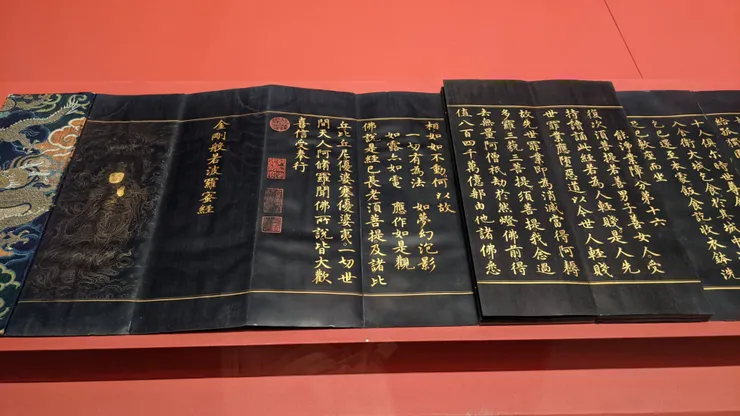 已敷座而坐
能淨業障分第十六
復次須菩提若善男子善女人受
持讀誦此經若為人輕賤是人先
世罪業應墮惡道以今世人輕賤
故先世罪業即為消滅當得阿耨
多羅三藐三菩提須菩提我念過
去無量阿僧祇劫於燃燈佛前得
值八百四千萬億那由他諸佛悉
相如如不動何以故
一切有為法 如夢幻泡影
如露亦如電 應作如是觀
佛說是經已長老須菩提及諸比
丘比丘尼優婆塞優婆夷一切世
間天人阿修羅聞佛所說皆大歡
喜信受奉行
金剛般若波羅蜜經